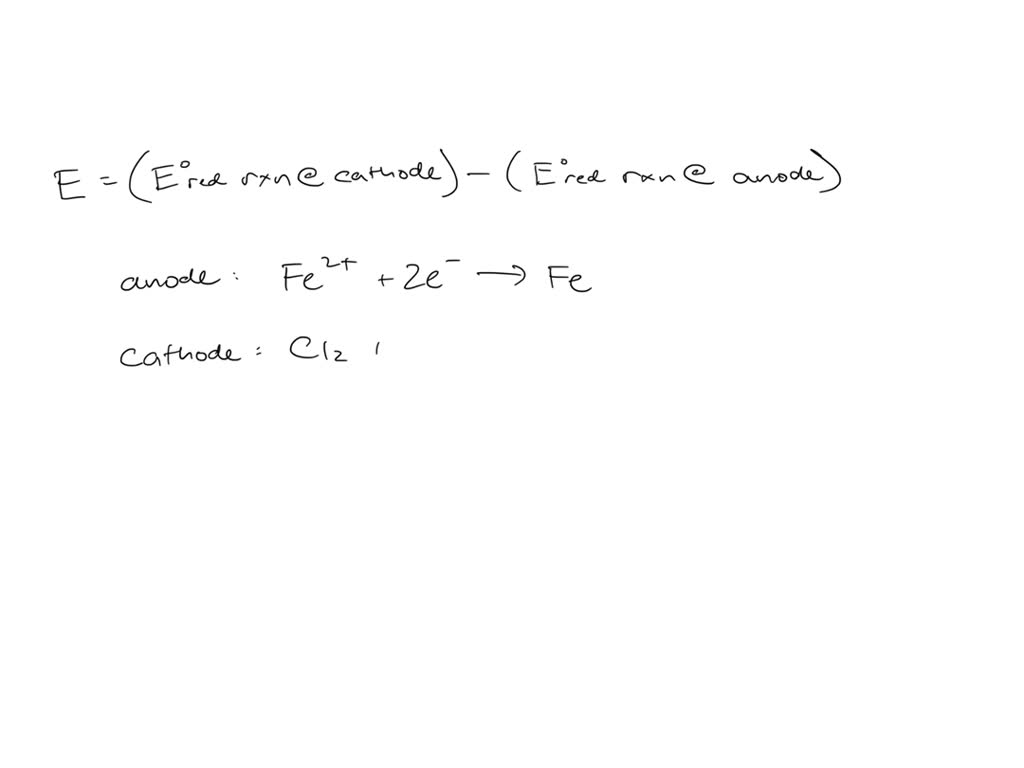 E = (E°red rxn @ cathode) - (E°red rxn @ anode)
anode: Fe²⁺ + 2e⁻ → Fe
cathode: Cl₂